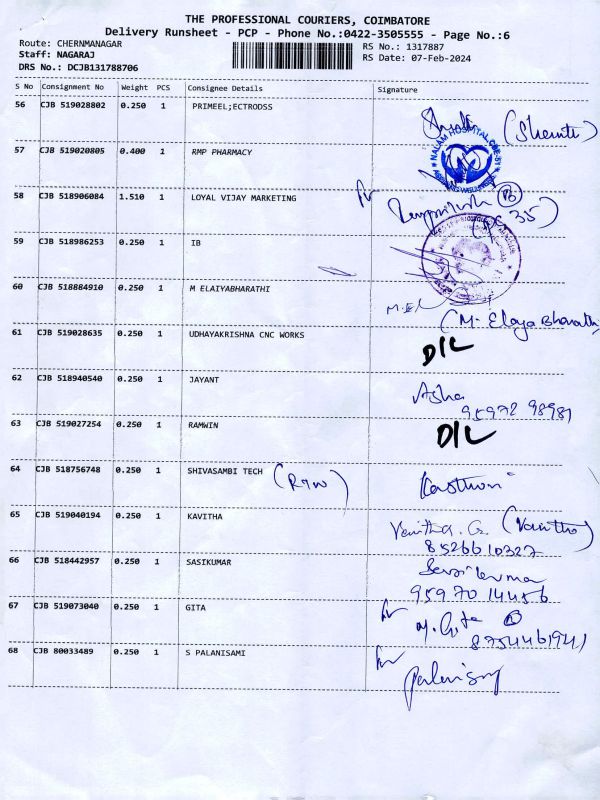 THE PROFESSIONAL COURIERS, COIMBATORE
Delivery Runsheet - PCP - Phone No.:0422-3505555 - Page No.:6
Route: CHERNMANAGAR
Staff: NAGARAJ
DRS No.: DCJB131788706
RS No.: 1317887
RS Date: 07-Feb-2024
S No Consignment No Weight PCS Consignee Details Signature
56 CJB 519028802 0.250 1 PRIMEEL;ECTRODSS
(Shanthi)
57 CJB 519020805 0.400 1 RMP PHARMACY
NALAM HOSPITAL
58 CJB 518906084 1.510 1 LOYAL VIJAY MARKETING
59 CJB 518986253 0.250 1 IB
60 CJB 518884910 0.250 1 M ELAIYABHARATHI
M.El
(M. Elaya Bharathi)
61 CJB 519028635 0.250 1 UDHAYAKRISHNA CNC WORKS
D/L
62 CJB 518940540 0.250 1 JAYANT
Asha
95972 98981
63 CJB 519027254 0.250 1 RAMWIN
D/L
64 CJB 518756748 0.250 1 SHIVASAMBI TECH
Kasthuri
65 CJB 519040194 0.250 1 KAVITHA
Vanitha. G. (Vanitha)
8526610327
66 CJB 518442957 0.250 1 SASIKUMAR
Sasikumar
95970 14456
67 CJB 519073040 0.250 1 GITA
M. Gita
8754461941
68 CJB 80033489 0.250 1 S PALANISAMI
Palanisamy